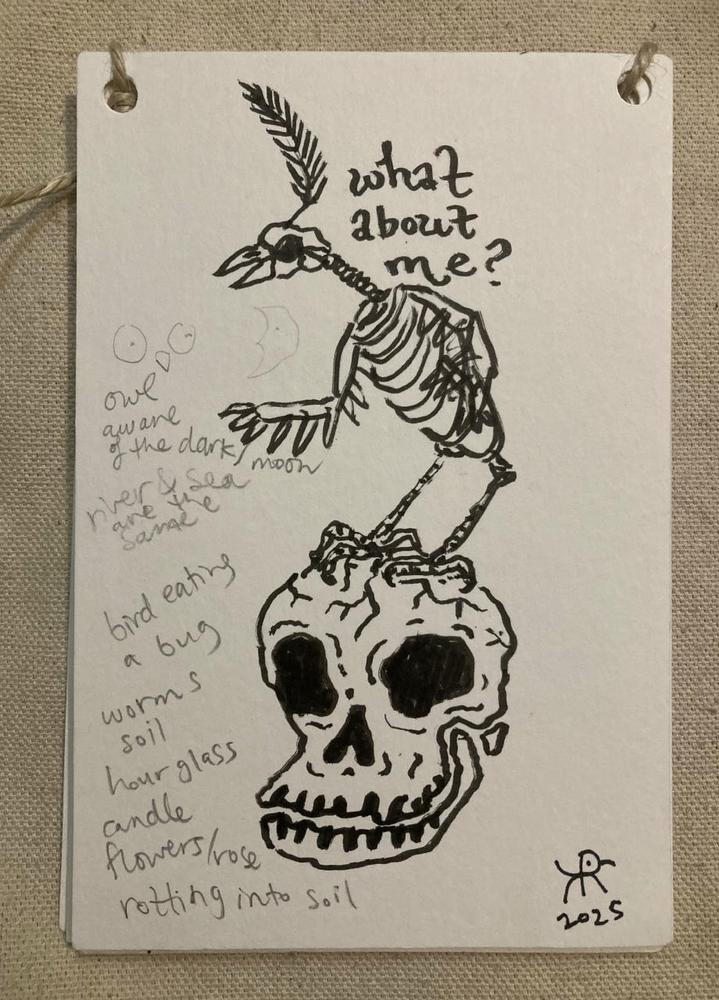 what
about
me?
owl
aware
of the dark/
moon
river & sea
are the
same
bird eating
a bug
worms
soil
hour glass
candle
flowers/rose
rotting into soil
2025